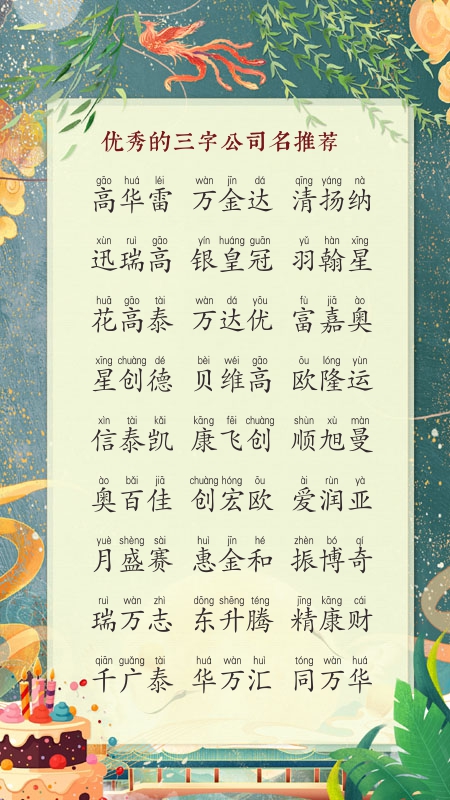 优秀的三字公司名推荐
gāo huá léi wàn jīn dá qīng yáng nà
高华雷 万金达 清扬纳
xùn ruì gāo yín huáng guān yǔ hàn xīng
迅瑞高 银皇冠 羽翰星
huā gāo tài wàn dá yōu fù jiā ào
花高泰 万达优 富嘉奥
xīng chuàng dé bèi wéi gāo ōu lóng yùn
星创德 贝维高 欧隆运
xìn tài kǎi kāng fēi chuàng shùn xù màn
信泰凯 康飞创 顺旭曼
ào bǎi jiā chuàng hóng ōu ài rùn yà
奥百佳 创宏欧 爱润亚
yuè shèng sài huì jīn hé zhèn bó qí
月盛赛 惠金和 振博奇
ruì wàn zhì dōng shēng téng jīng kāng cái
瑞万志 东升腾 精康财
qiān guǎng tài huá wàn huì tóng wàn huá
千广泰 华万汇 同万华